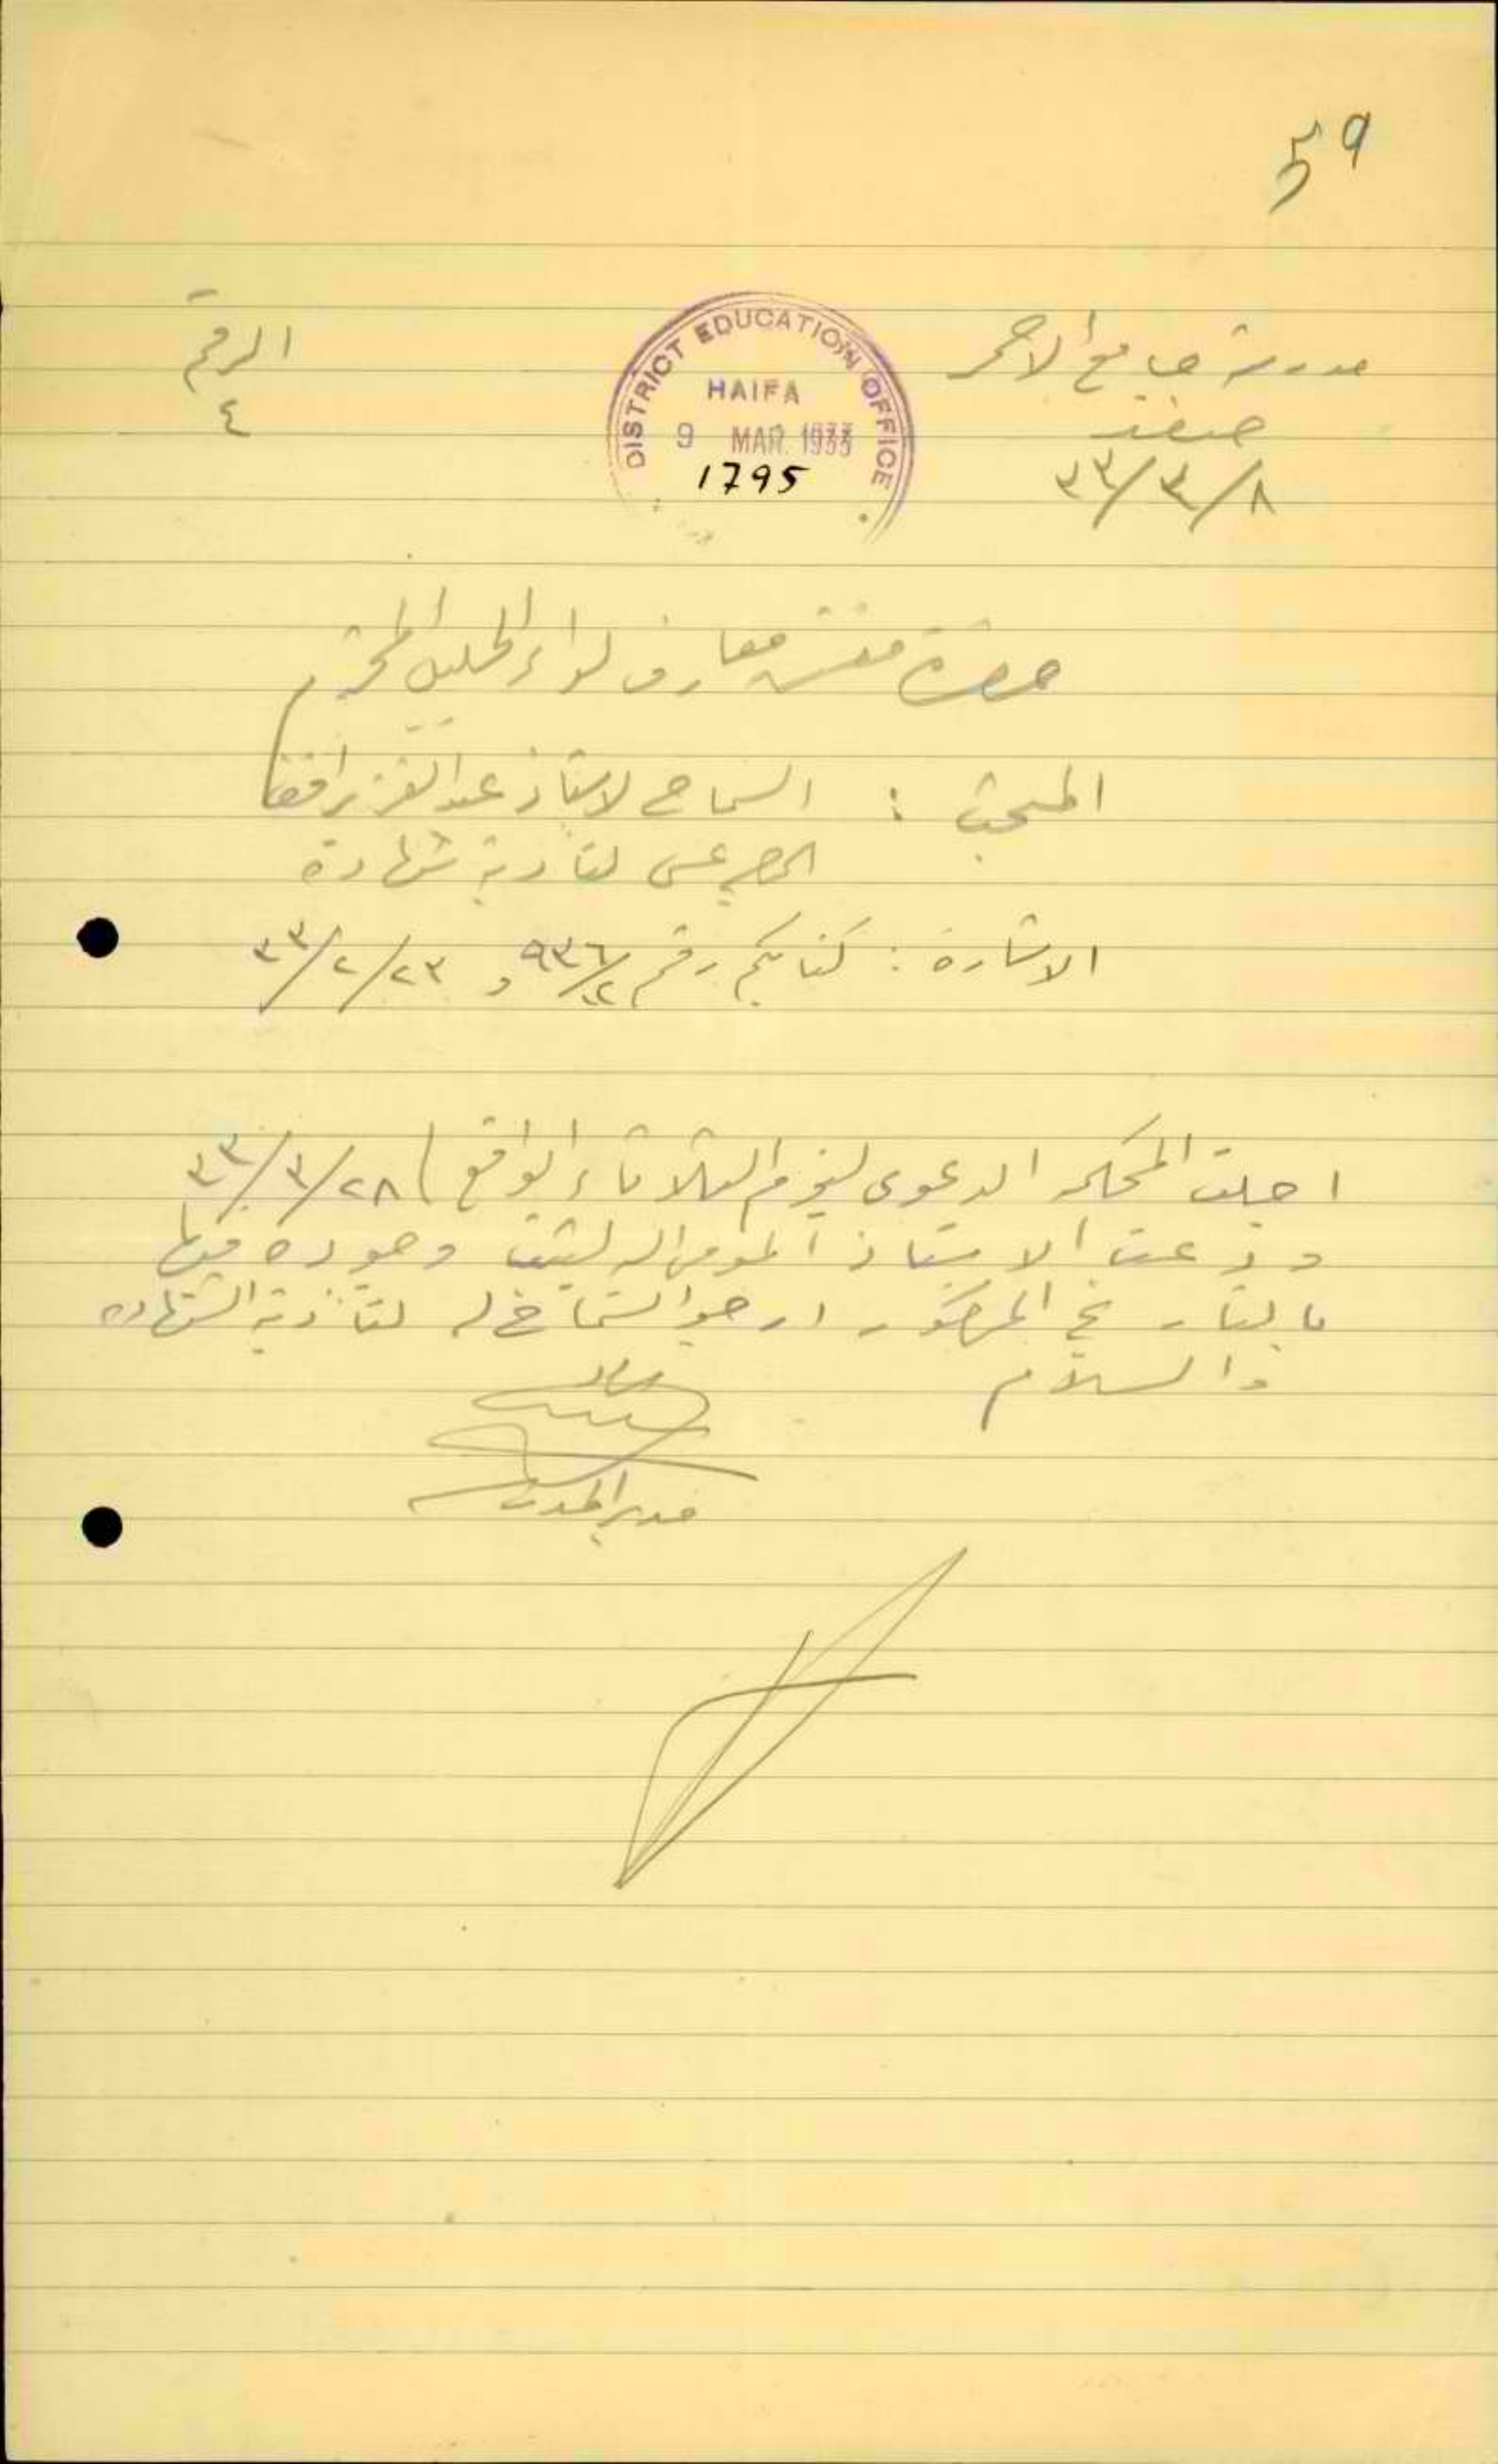 59
مدرسة جامع الاحمر
صفد
٨/٣/٣٣
DISTRICT EDUCATION OFFICE
HAIFA
9 MAR. 1933
1795
الرقم
٤
حضرة مفتش معارف لواء الجليل المحترم
المبحث : السماح لاستاذ عبد العزيز افندي
لتأدية شهادة
الاشارة : كتابكم رقم ٩٣٦/١٢ و ٢٣/٢/٣٣
اجلت المحكمه الدعوى ليوم الثلاثاء الواقع ٢٨/٣/٣٣
ودعت الاستاذ المومى اليه وجوده فيها
بالتاريخ المذكور ارجو السماح له لتأدية الشهاده
والسلام
مدير المدرسة